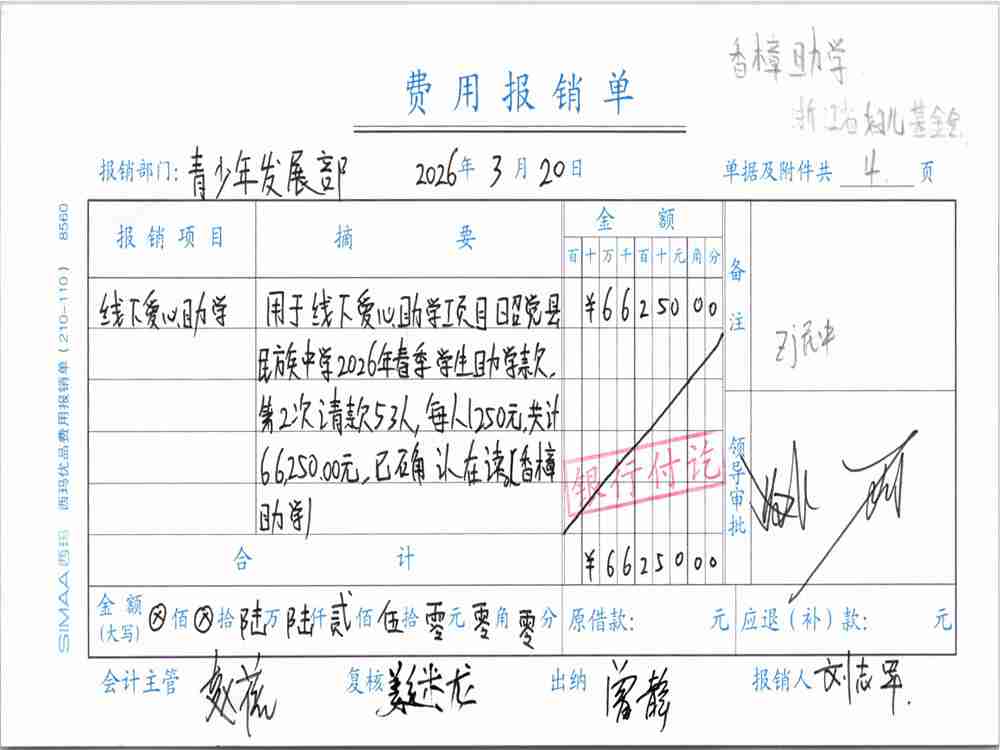 香樟助学
浙江省妇儿基金会
费用报销单
报销部门: 青少年发展部 2026年 3月 20日 单据及附件共 4. 页
报销项目 摘要 金额 备注
百十万千百十元角分
线下爱心助学 用于线下爱心助学项目昭觉县 ¥6625000
民族中学2026年春季学生助学款,
第2次请款53人,每人1250元,共计
66,250.00元,已确认在读[香樟
助学]
银行付讫
领导审批
合计 ¥6625000
金额(大写) ⊗佰⊗拾陆万陆仟贰佰伍拾零元零角零分 原借款: 元 应退(补)款: 元
会计主管 复核 出纳 曾静 报销人 刘志军.
SIMAA西玛 西玛优品费用报销单(210-110) 8560